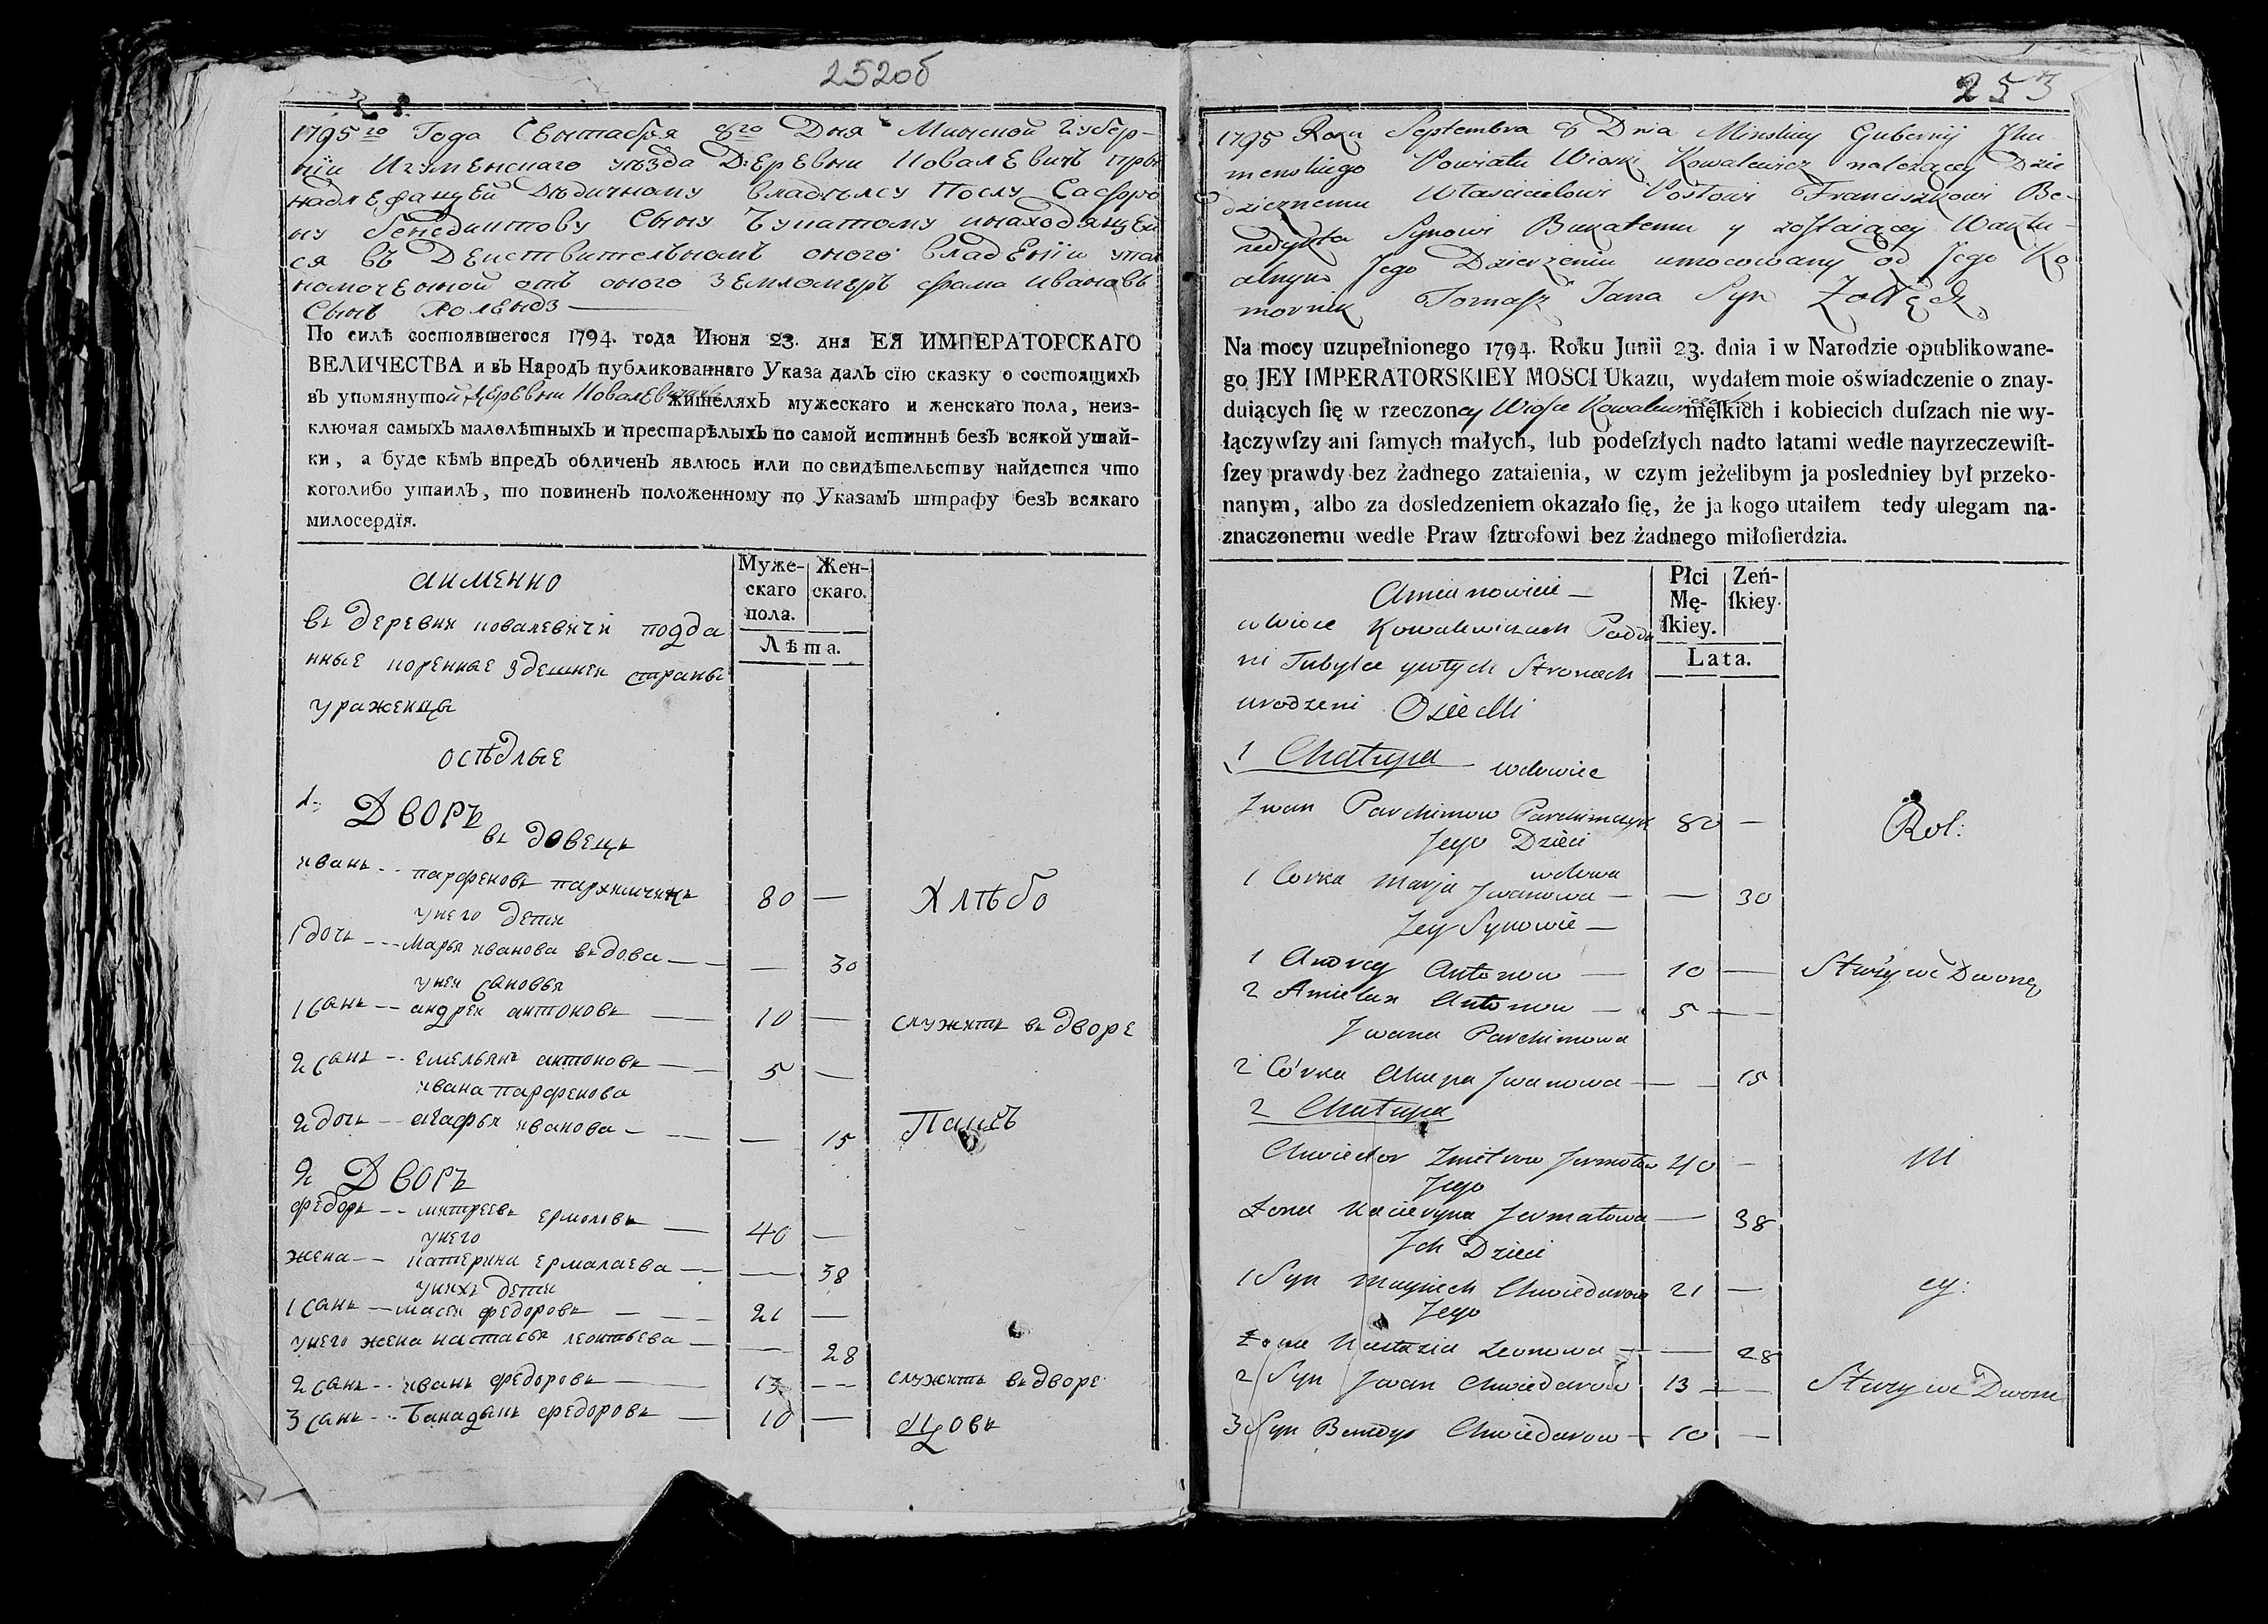 252об
1795го Года Сентября 8го Дня Минской Губер-
нии Игуменскаго уѣзда Деревни Ковалевичъ при
надлежащей Дѣдичному владѣльсу Послу
Бенедиктову Сыну инаходящей
ся въ Деиствительномъ оного владении упол
номоченой отъ оного Землемеръ Фома Ивановъ
Сынъ
По силѣ состоявшегося 1794. года Июня 23. дня ЕЯ ИМПЕРАТОРСКАГО
ВЕЛИЧЕСТВА и въ Народъ публикованнаго Указа далъ сїю сказку о состоящихъ
въ упомянутой Деревни Ковалевичахъ жителяхъ мужескаго и женскаго пола, неиз-
ключая самыхъ малолѣтныхъ и престарѣлыхъ по самой истиннѣ безъ всякой утай-
ки, а буде кѣмъ впредъ обличенъ явлюсь или по свидѣтельству найдется что
коголибо утаилъ, то повиненъ положенному по Указамъ штрафу безъ всякаго
милосердїя.
аименно
Муже-
скаго
пола.
Жен-
скаго.
Лѣта.
въ деревни ковалевичи подда
нные коренные здешней страны
ураженцы
осѣдлые
1. Дворъ
вдовецъ
иванъ -- парфеновъ пархимчикъ 80 — Хлѣбо
унего дети
1 дочь --- Марья иванова вдова — — 30
унея сыновья
1 сынъ -- андрей антоновъ — 10 — служитъ въ дворе
2 сынъ -- емельянъ антоновъ — 5 —
ивана парфенова
2 дочь -- агафья иванова — — 15 Пашъ
2 Дворъ
федоръ -- митреевъ ермоловъ — 40 —
унего
жена -- катерина ермалаева — — 38
унихъ дети
1 сынъ — масей федоровъ — 21 —
унего жена настасья леонтьева — — 28
2 сынъ -- иванъ федоровъ — 13 -- служитъ въ дворе
3 сынъ -- федоровъ — 10 — цовъ
253
1795 Roku Septembra 8 Dnia Minskiey Gubernij Jhu
menskiego Powiatu Wioski Kowalewicz należącey Dzie
dzicznemu Włascicielowi Posłowi Franciszkowi Be-
nedykta Synowi Bukatemu y zostaiącey Waktu-
alnym Jego Dzierzeniu umocowany od Jego Ko
mornik Tomasz Jana Syn
Na mocy uzupełnionego 1794. Roku Junii 23. dnia i w Narodzie opublikowane-
go JEY IMPERATORSKIEY MOSCI Ukazu, wydałem moie oświadczenie o znay-
duiących ſię w rzeczoney Wiosce Kowalewiczach męſkich i kobiecich duſzach nie wy-
łączywſzy ani ſamych małych, lub podeſzłych nadto latami wedle nayrzeczewiſt-
ſzey prawdy bez żadnego zataienia, w czym jeżelibym ja posledniey był przeko-
nanym, albo za dosledzeniem okazało ſię, że ja kogo utaiłem tedy ulegam na-
znaczonemu wedle Praw ſztrofowi bez żadnego miłoſierdzia.
Amianowicie —
Płci
Mę-
ſkiey.
Zeń-
ſkiey.
Lata.
w wioce Kowalewiczach Podda
ni Tubylce ywtych Stronach
urodzeni Osiedli
1 Chatupa wdowiec
Jwan Parchimow Parchimczyk 80 — Rol:
Jego Dzieci
1 Corka Marja Jwanowa wdowa — — 30
Jey Synowie —
1 Andrey Antonow — 10 — Służy we Dworze
2 Amielan Antonow — 5 —
Jwana Parchimowa
2 Córka Ahapa Jwanowa — — 15
2 Chatupa
Chwiedor Zmitrow Jermołow 40 — ni
Jego
Żona Kacieryna Jermałowa — 38
Jch Dzieci
1 Syn Maysiech Chwiedorow 21 — cy:
Jego
Żona Nastazia Leonowa — — 28
2 Syn Jwan Chwiedorow 13 — Służy we Dworze
3 Syn Chwiedorow — 10 —